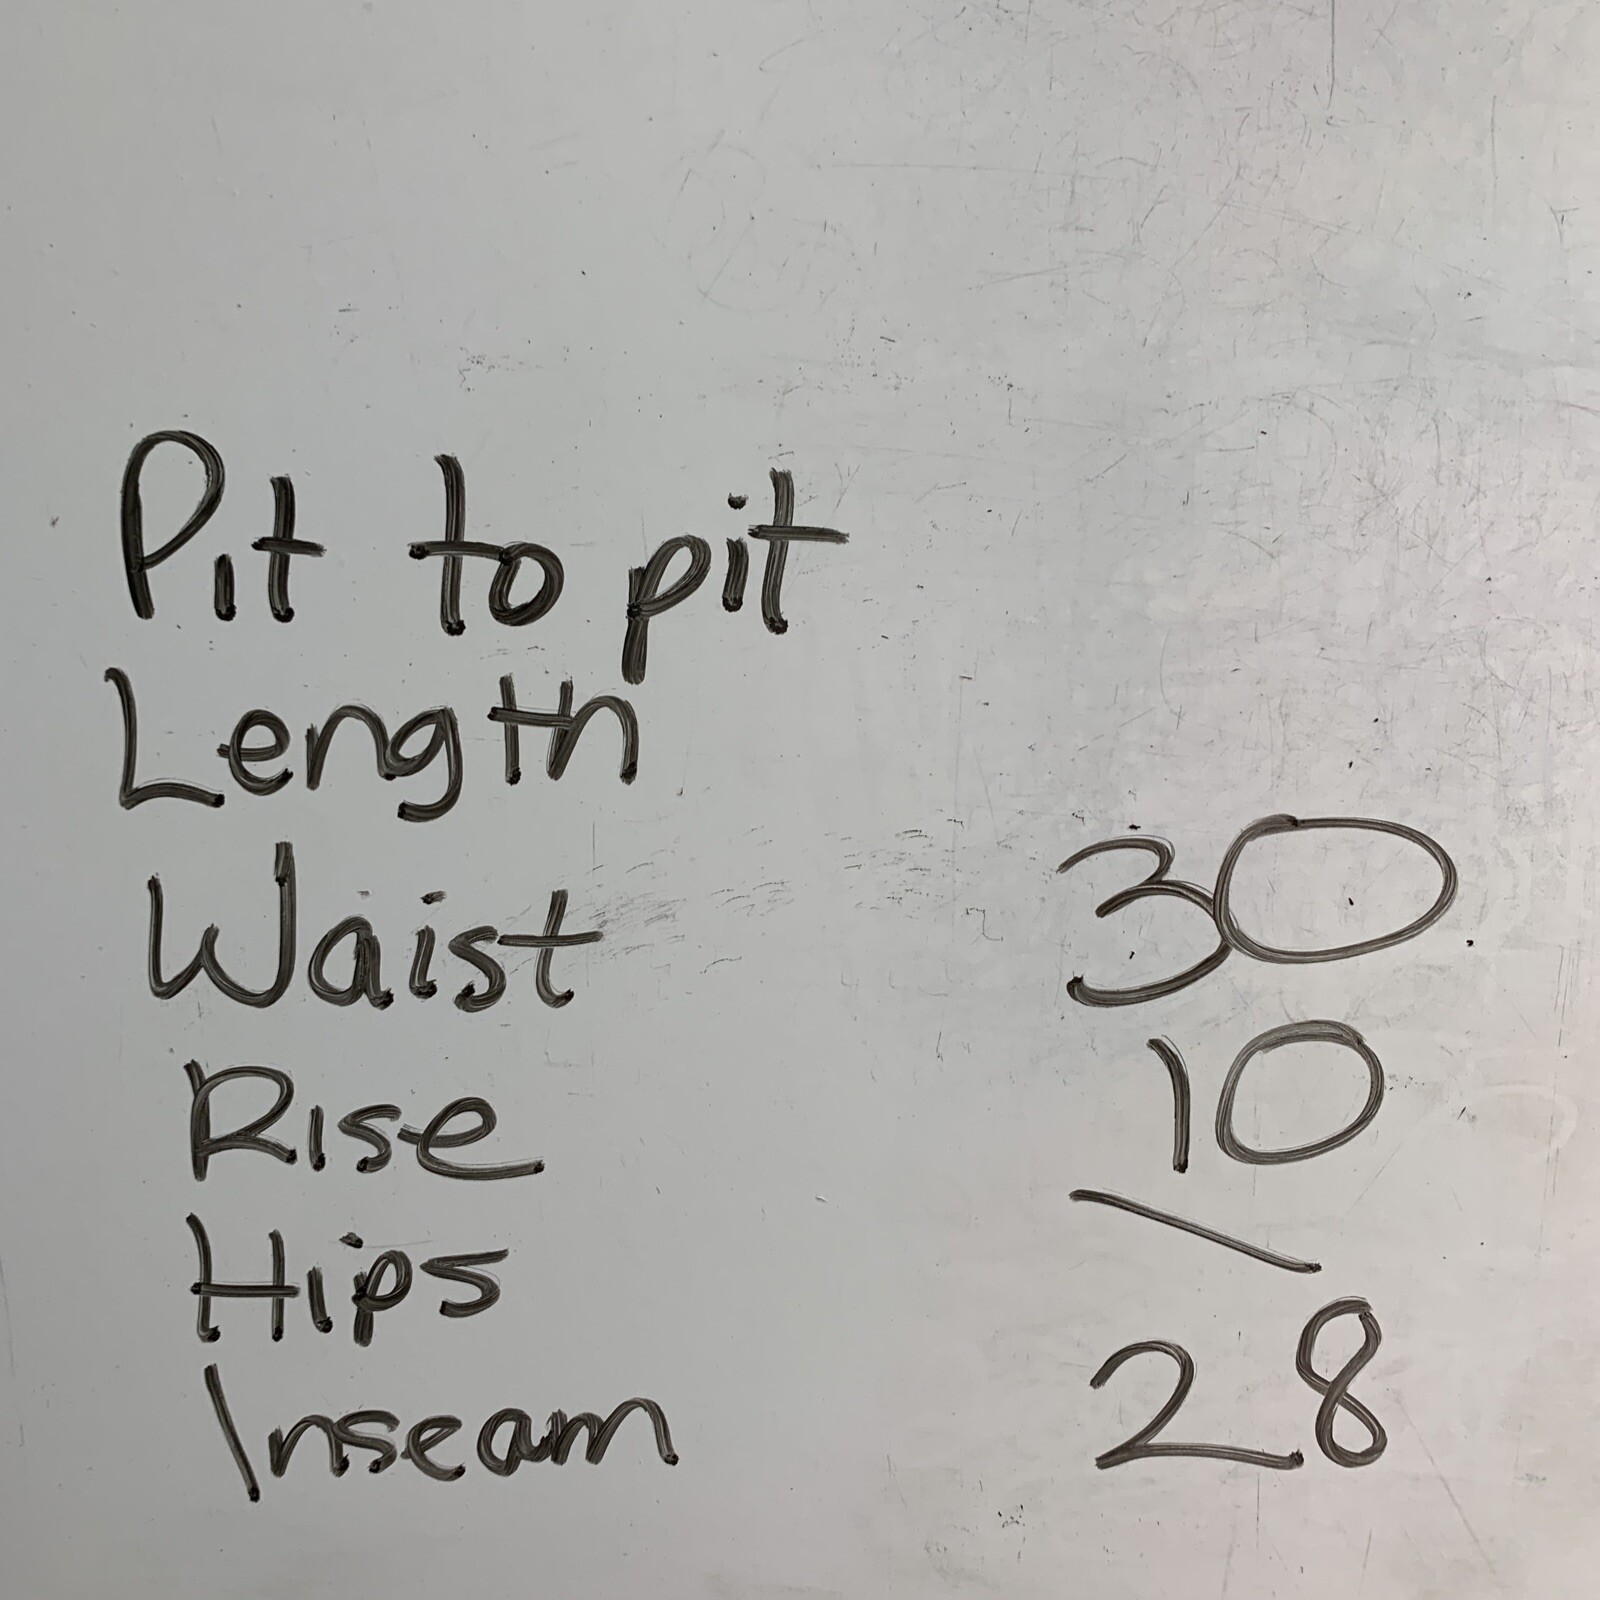 Pit to pit
Length
Waist 30
Rise 10
Hips \
Inseam 28